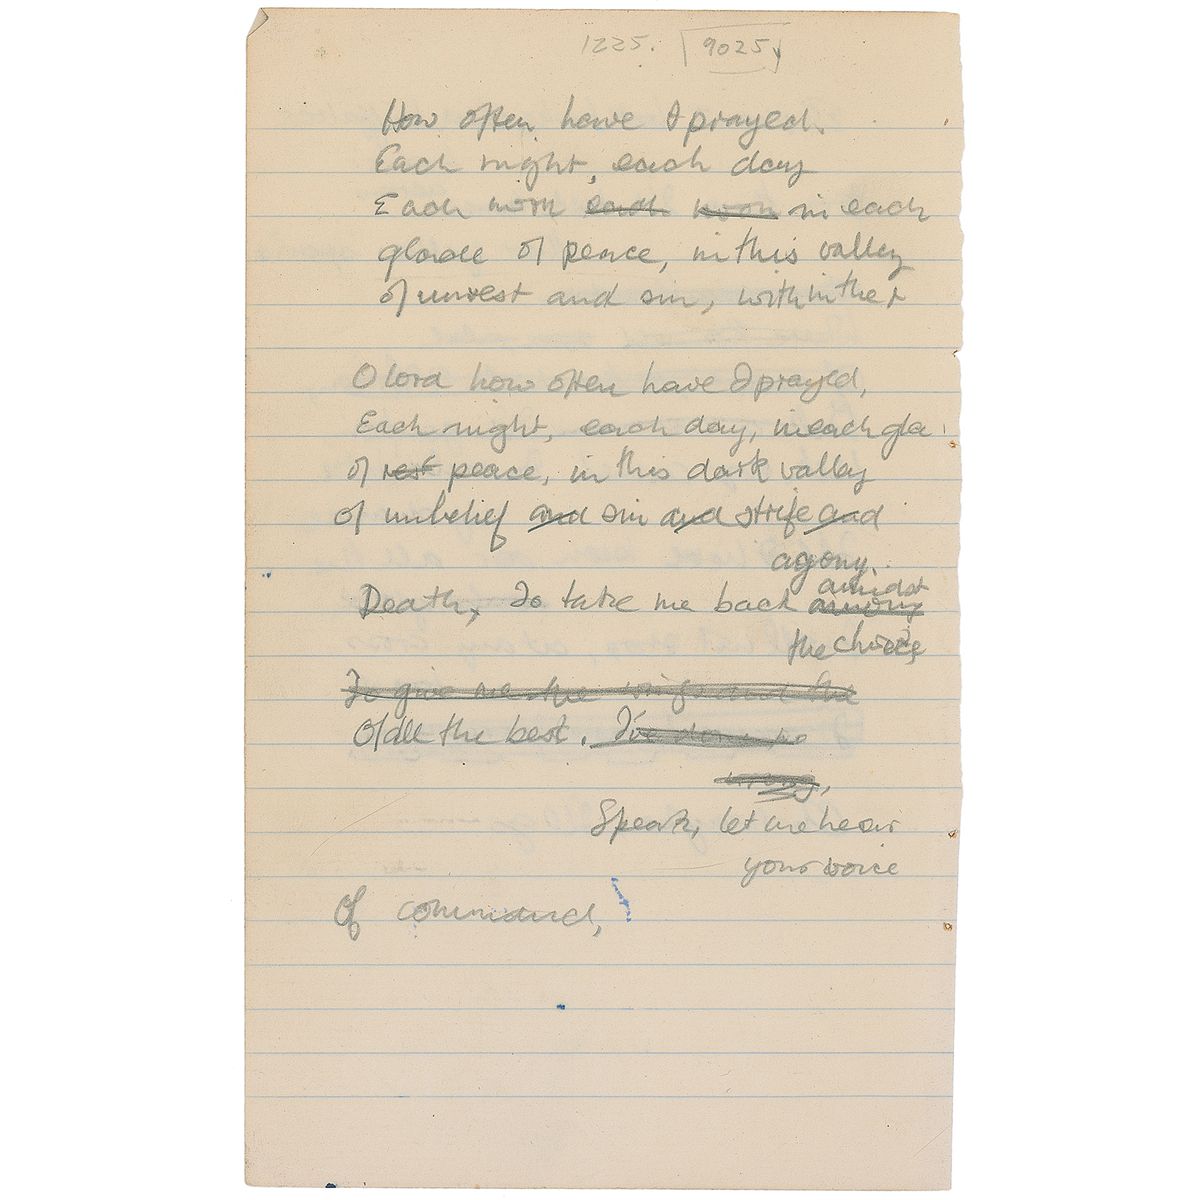 1225. 9025
How often have I prayed.
Each night, each day
Each morn each noon in each
glance of peace, in this valley
of unrest and sin, within the
O Lord how often have I prayed,
Each night, each day, in each gla
of rest peace, in this dark valley
of unbelief and sin and strife and
agony.
amidst
Death, To take me back among
the choice,
To give me the wings and the
Of all the best. I've done no
wrong,
Speak, let me hear
your voice
Of command,